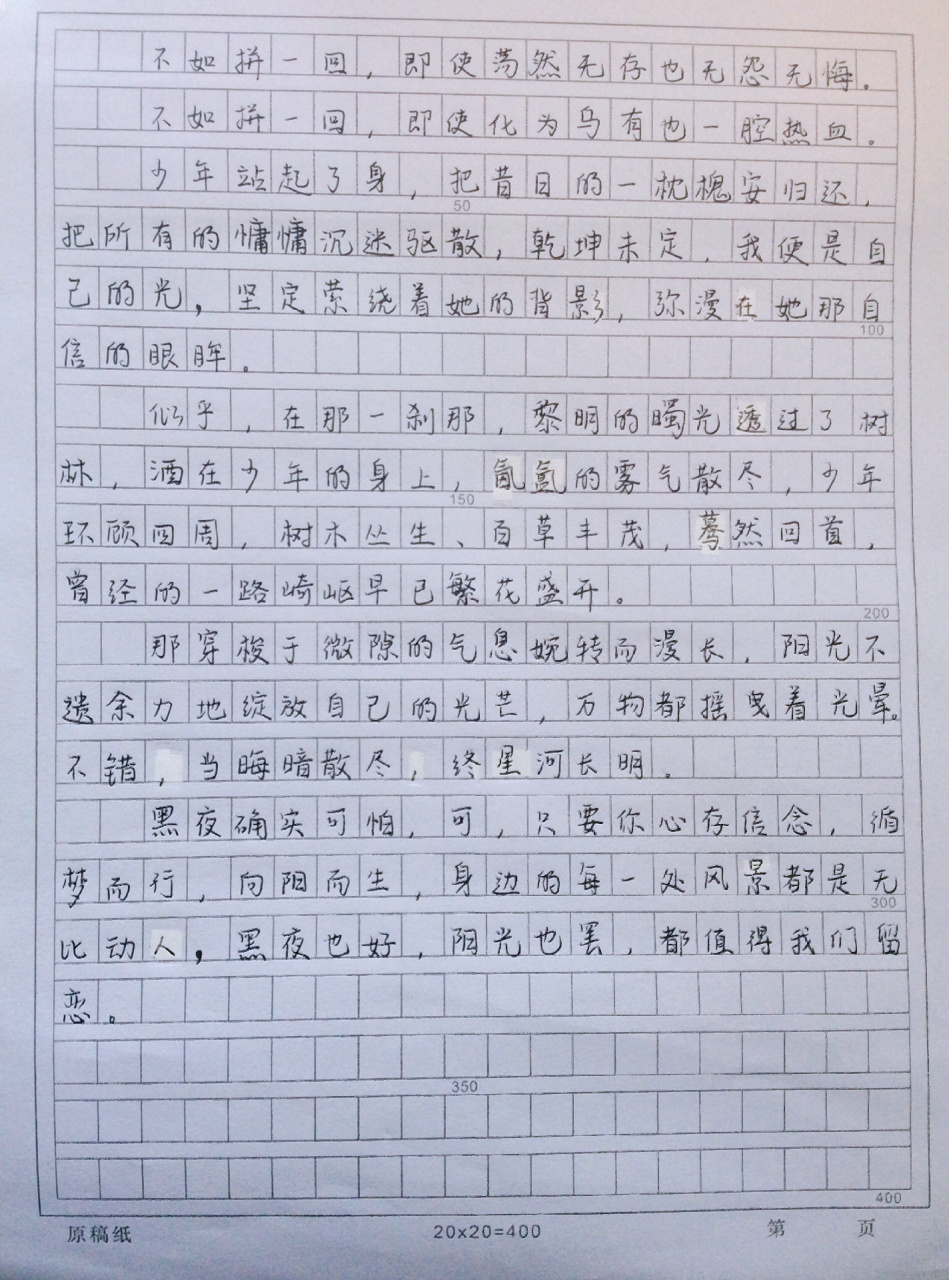 不如拼一回，即使荡然无存也无怨无悔。
不如拼一回，即使化为乌有也一腔热血。
少年站起了身，把昔日的一枕槐安归还，
50
把所有的慵慵沉迷驱散，乾坤未定，我便是自
己的光，坚定萦绕着她的背影，弥漫在她那自
100
信的眼眸。
似乎，在那一刹那，黎明的曙光透过了树
林，洒在少年的身上，氤氲的雾气散尽，少年
150
环顾四周，树木丛生、百草丰茂，蓦然回首，
曾经的一路崎岖早已繁花盛开。
200
那穿梭于微隙的气息婉转而漫长，阳光不
遗余力地绽放自己的光芒，万物都摇曳着光晕。
不错，当晦暗散尽，终星河长明。
黑夜确实可怕，可，只要你心存信念，循
梦而行，向阳而生，身边的每一处风景都是无
300
比动人，黑夜也好，阳光也罢，都值得我们留
恋。
350
400
原稿纸 20x20=400 第 页